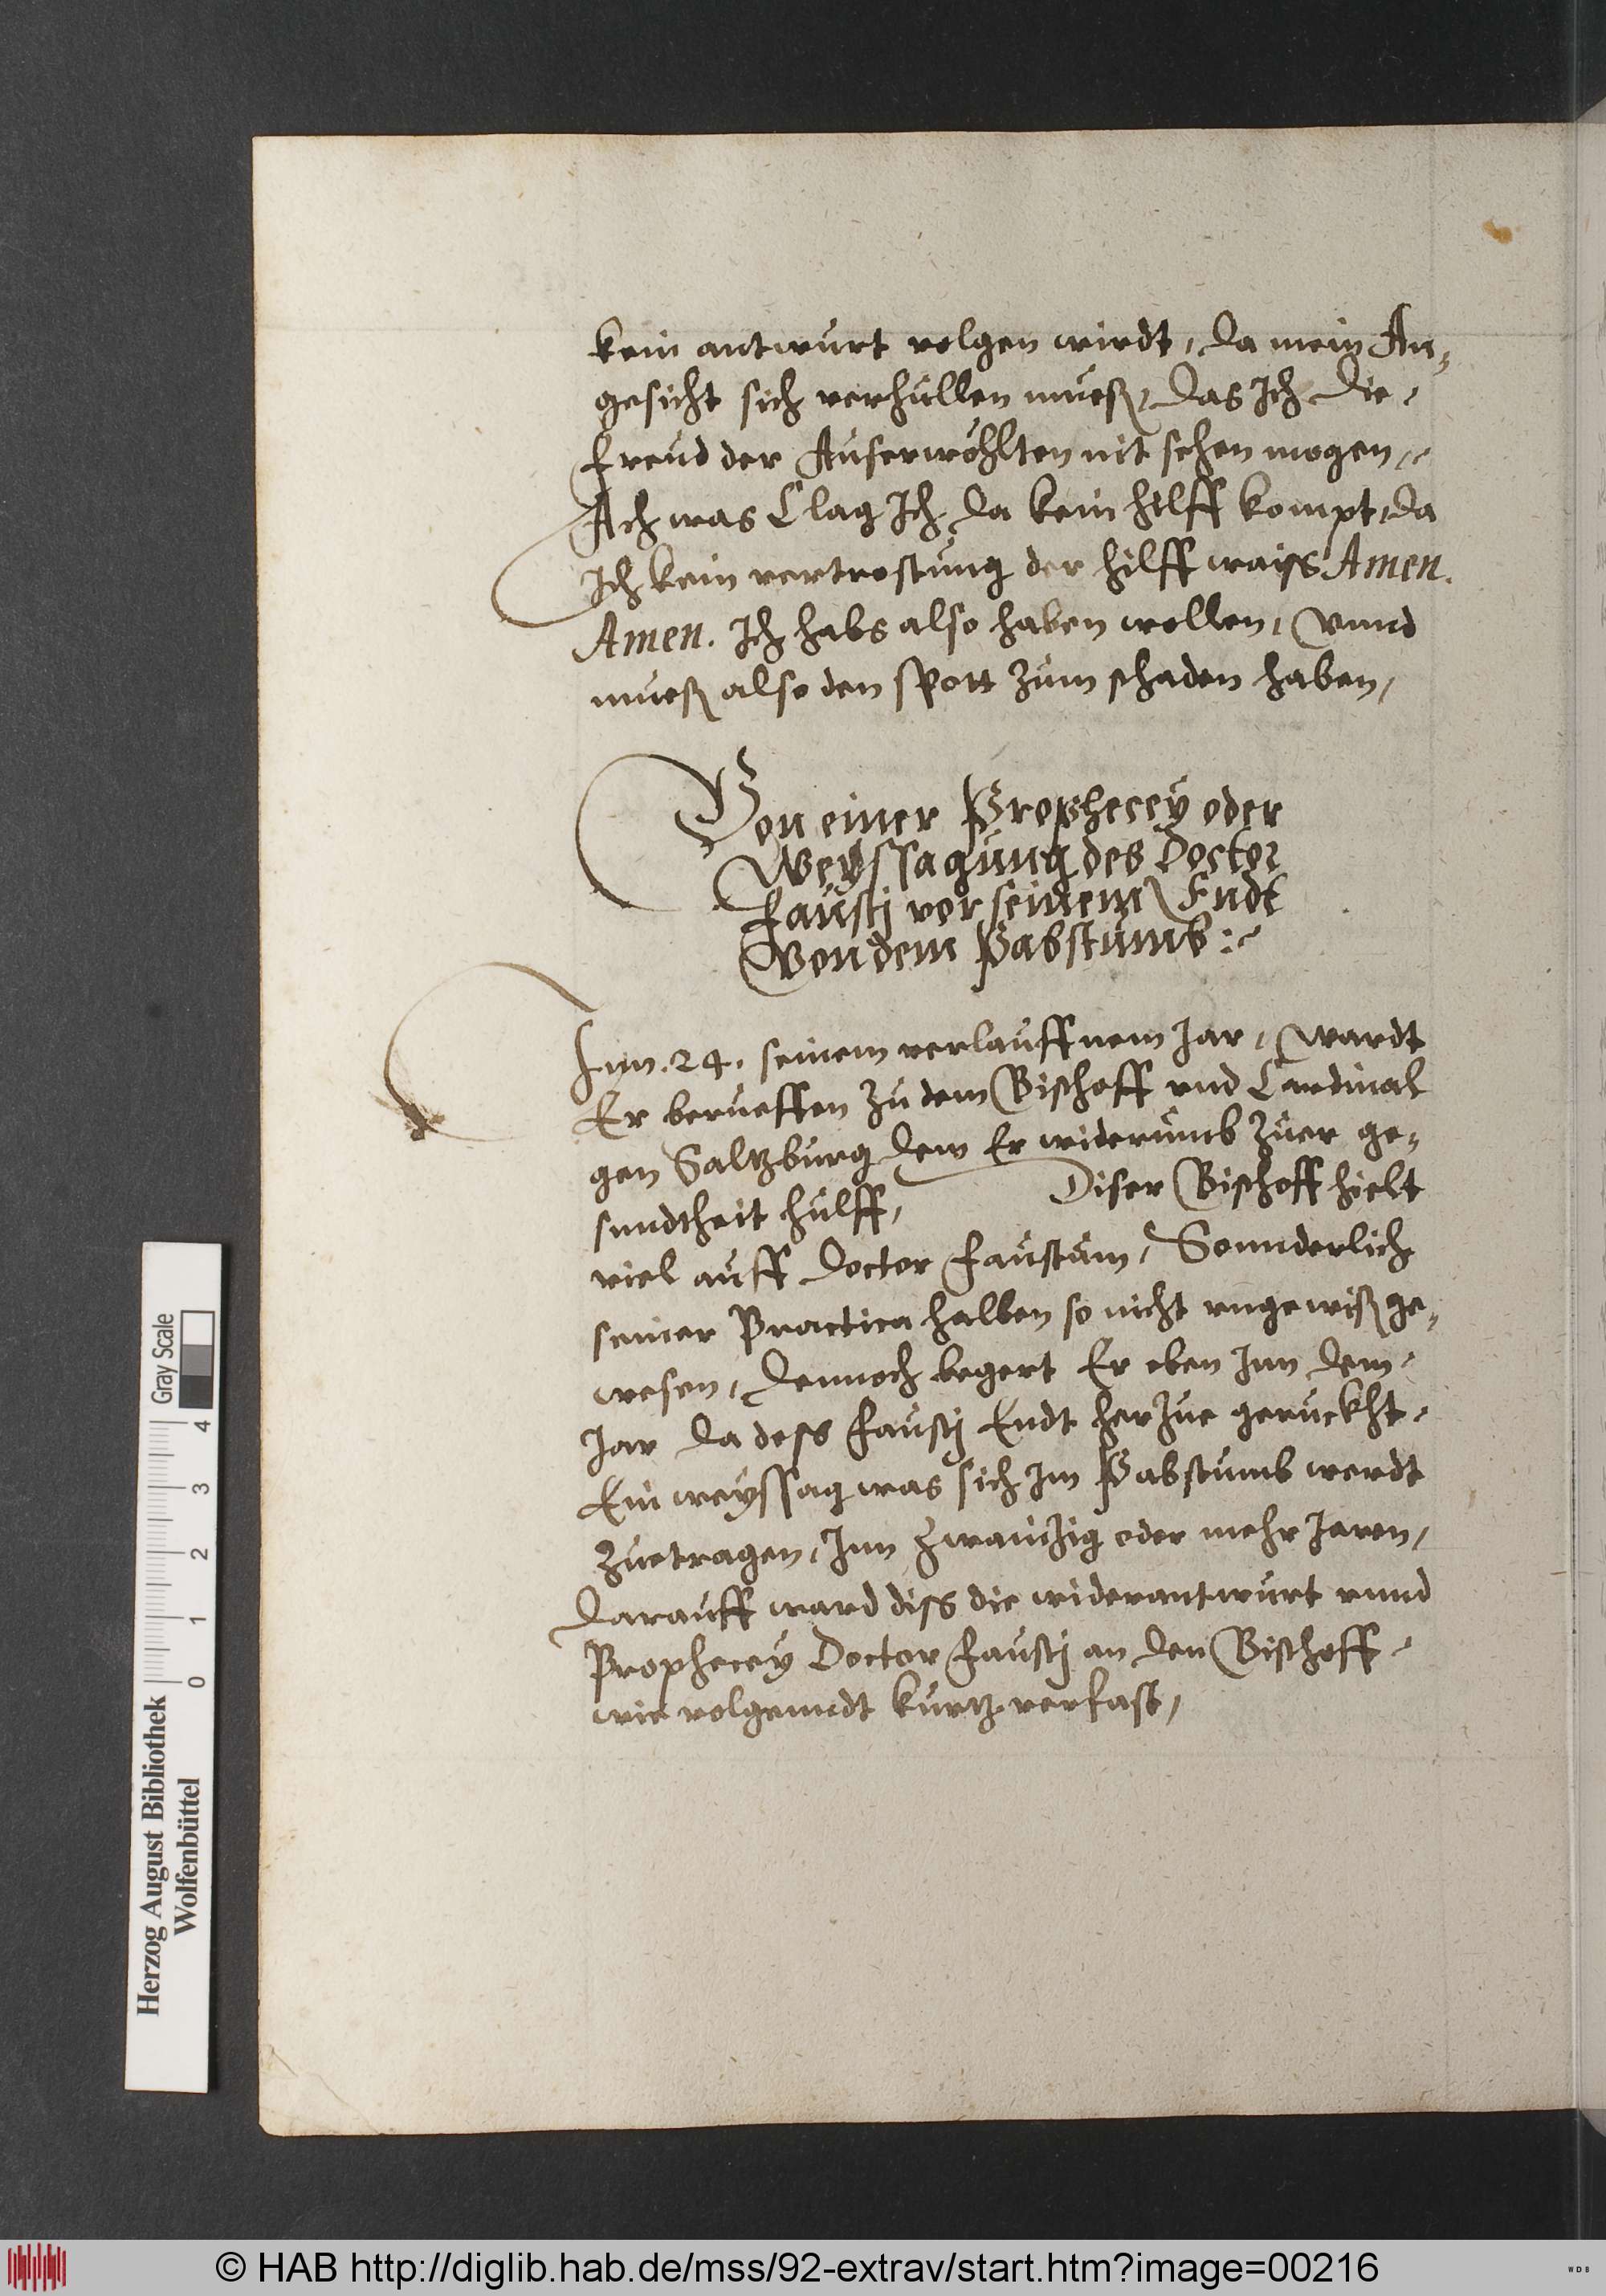 kein antwurt volgen wirdt, da mein An-
gesicht sich verhullen mueß, das Ich die
freud der Auserwöhlten nit sehen mogen,
Ach was Clag Ich da kein hilff kompt, da
Ich kein vertrostung der hilff waiss Amen.
Amen. Ich habs also haben wollen, vnnd
mueß also den spott zum schaden haben,
Von einer Prophecey oder
Weyssagung des Doctor
Faustj vor seinem Endt
von dem Pabstumb:
Inn .24. seinem verlauffnem Jar, wardt
Er berueffen zu dem Bischoff vnd Cardinal
gen Saltzburg dem Er widerumb zuer ge-
sundtheit hulff, Diser Bischoff hielt
viel auff Doctor Faustum, Sonnderlich
seiner Practica halben so nicht vngewiß ge-
wesen, dennoch begert Er eben Inn dem
Jar da dess Faustj Endt herzue geruckht
Ein weyssag was sich Im Pabstumb werdt
zuetragen, Inn zwainzig oder mehr Jaren,
darauff ward diss die widerantwurt vnnd
Prophecey Doctor Faustj an den Bischoff
wie volgenndt kurtz verfast,
Herzog August Bibliothek
Wolfenbüttel
Gray Scale
0 1 2 3 4
© HAB http://diglib.hab.de/mss/92-extrav/start.htm?image=00216